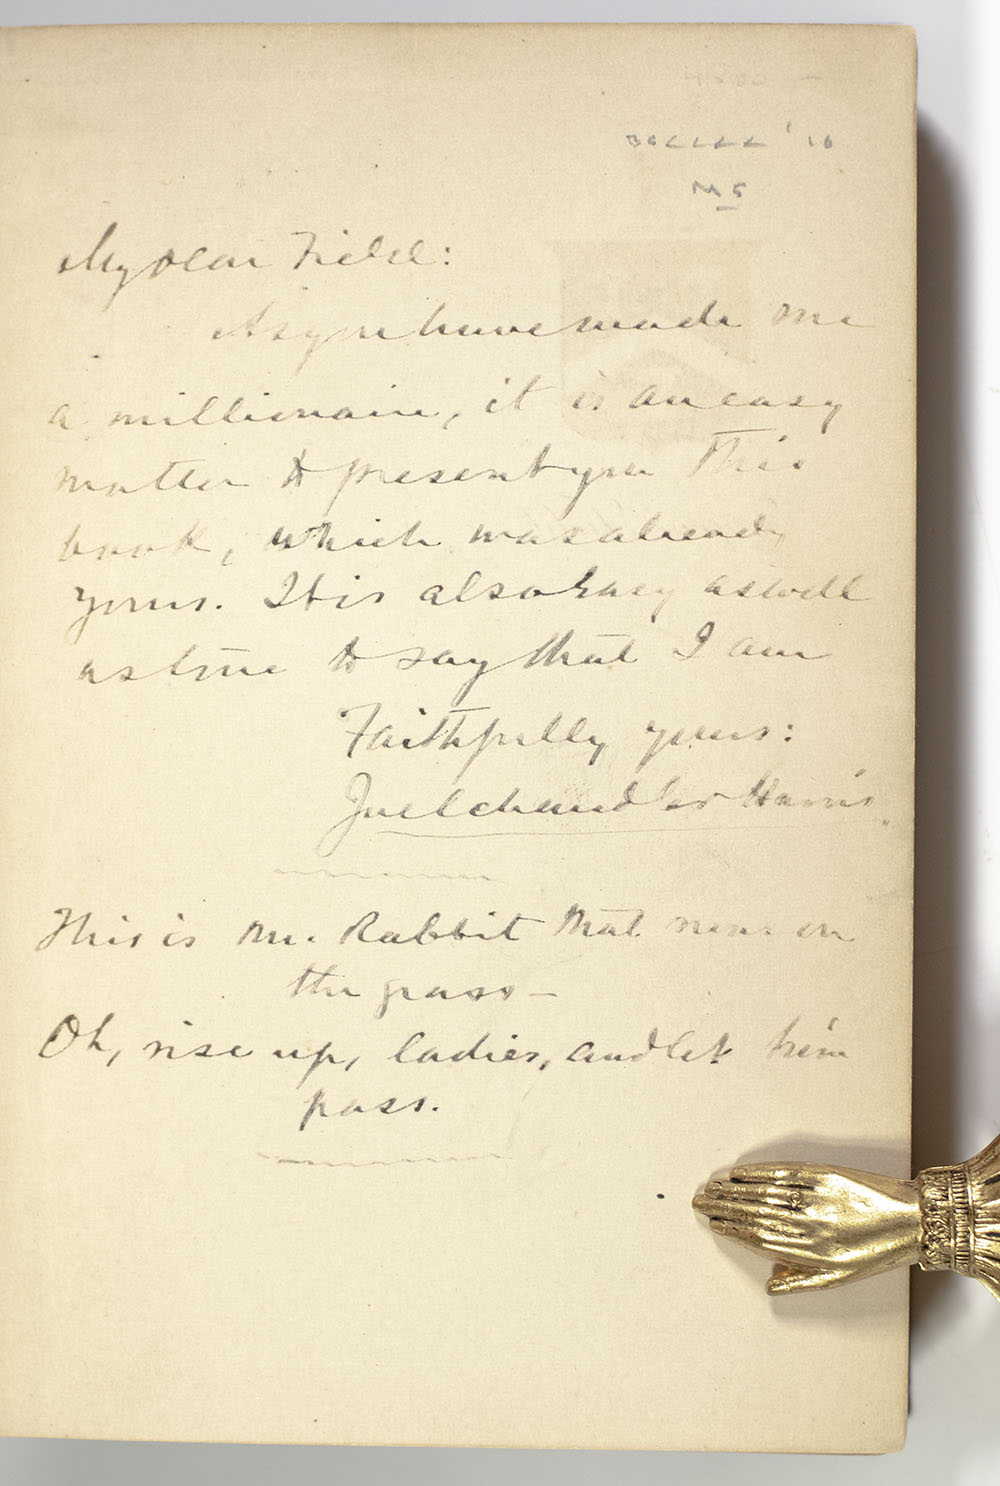 My dear Field:
As you have made me
a millionaire, it is an easy
matter to present you this
book, which was already
yours. It is also easy as well
as true to say that I am
Faithfully yours:
Joel Chandler Harris.
This is Mr. Rabbit that runs on
the grass—
Oh, rise up, ladies, and let him
pass.